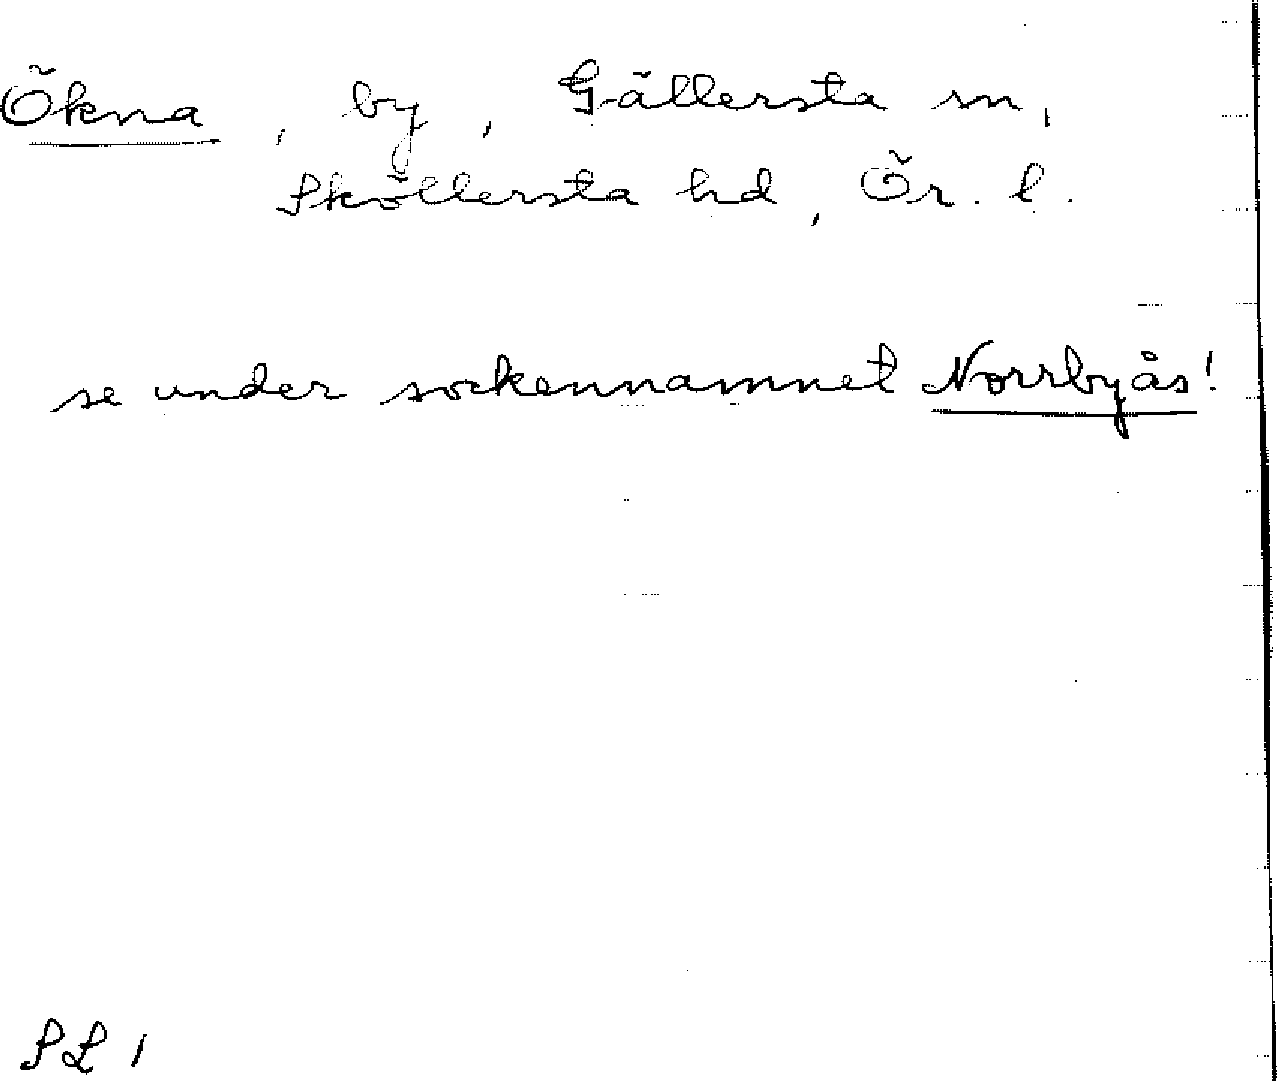 Ökna, by, Gällersta sn,
Sköllersta hd, Ör. l.
se under sockennamnet Norrbyås!
SL 1